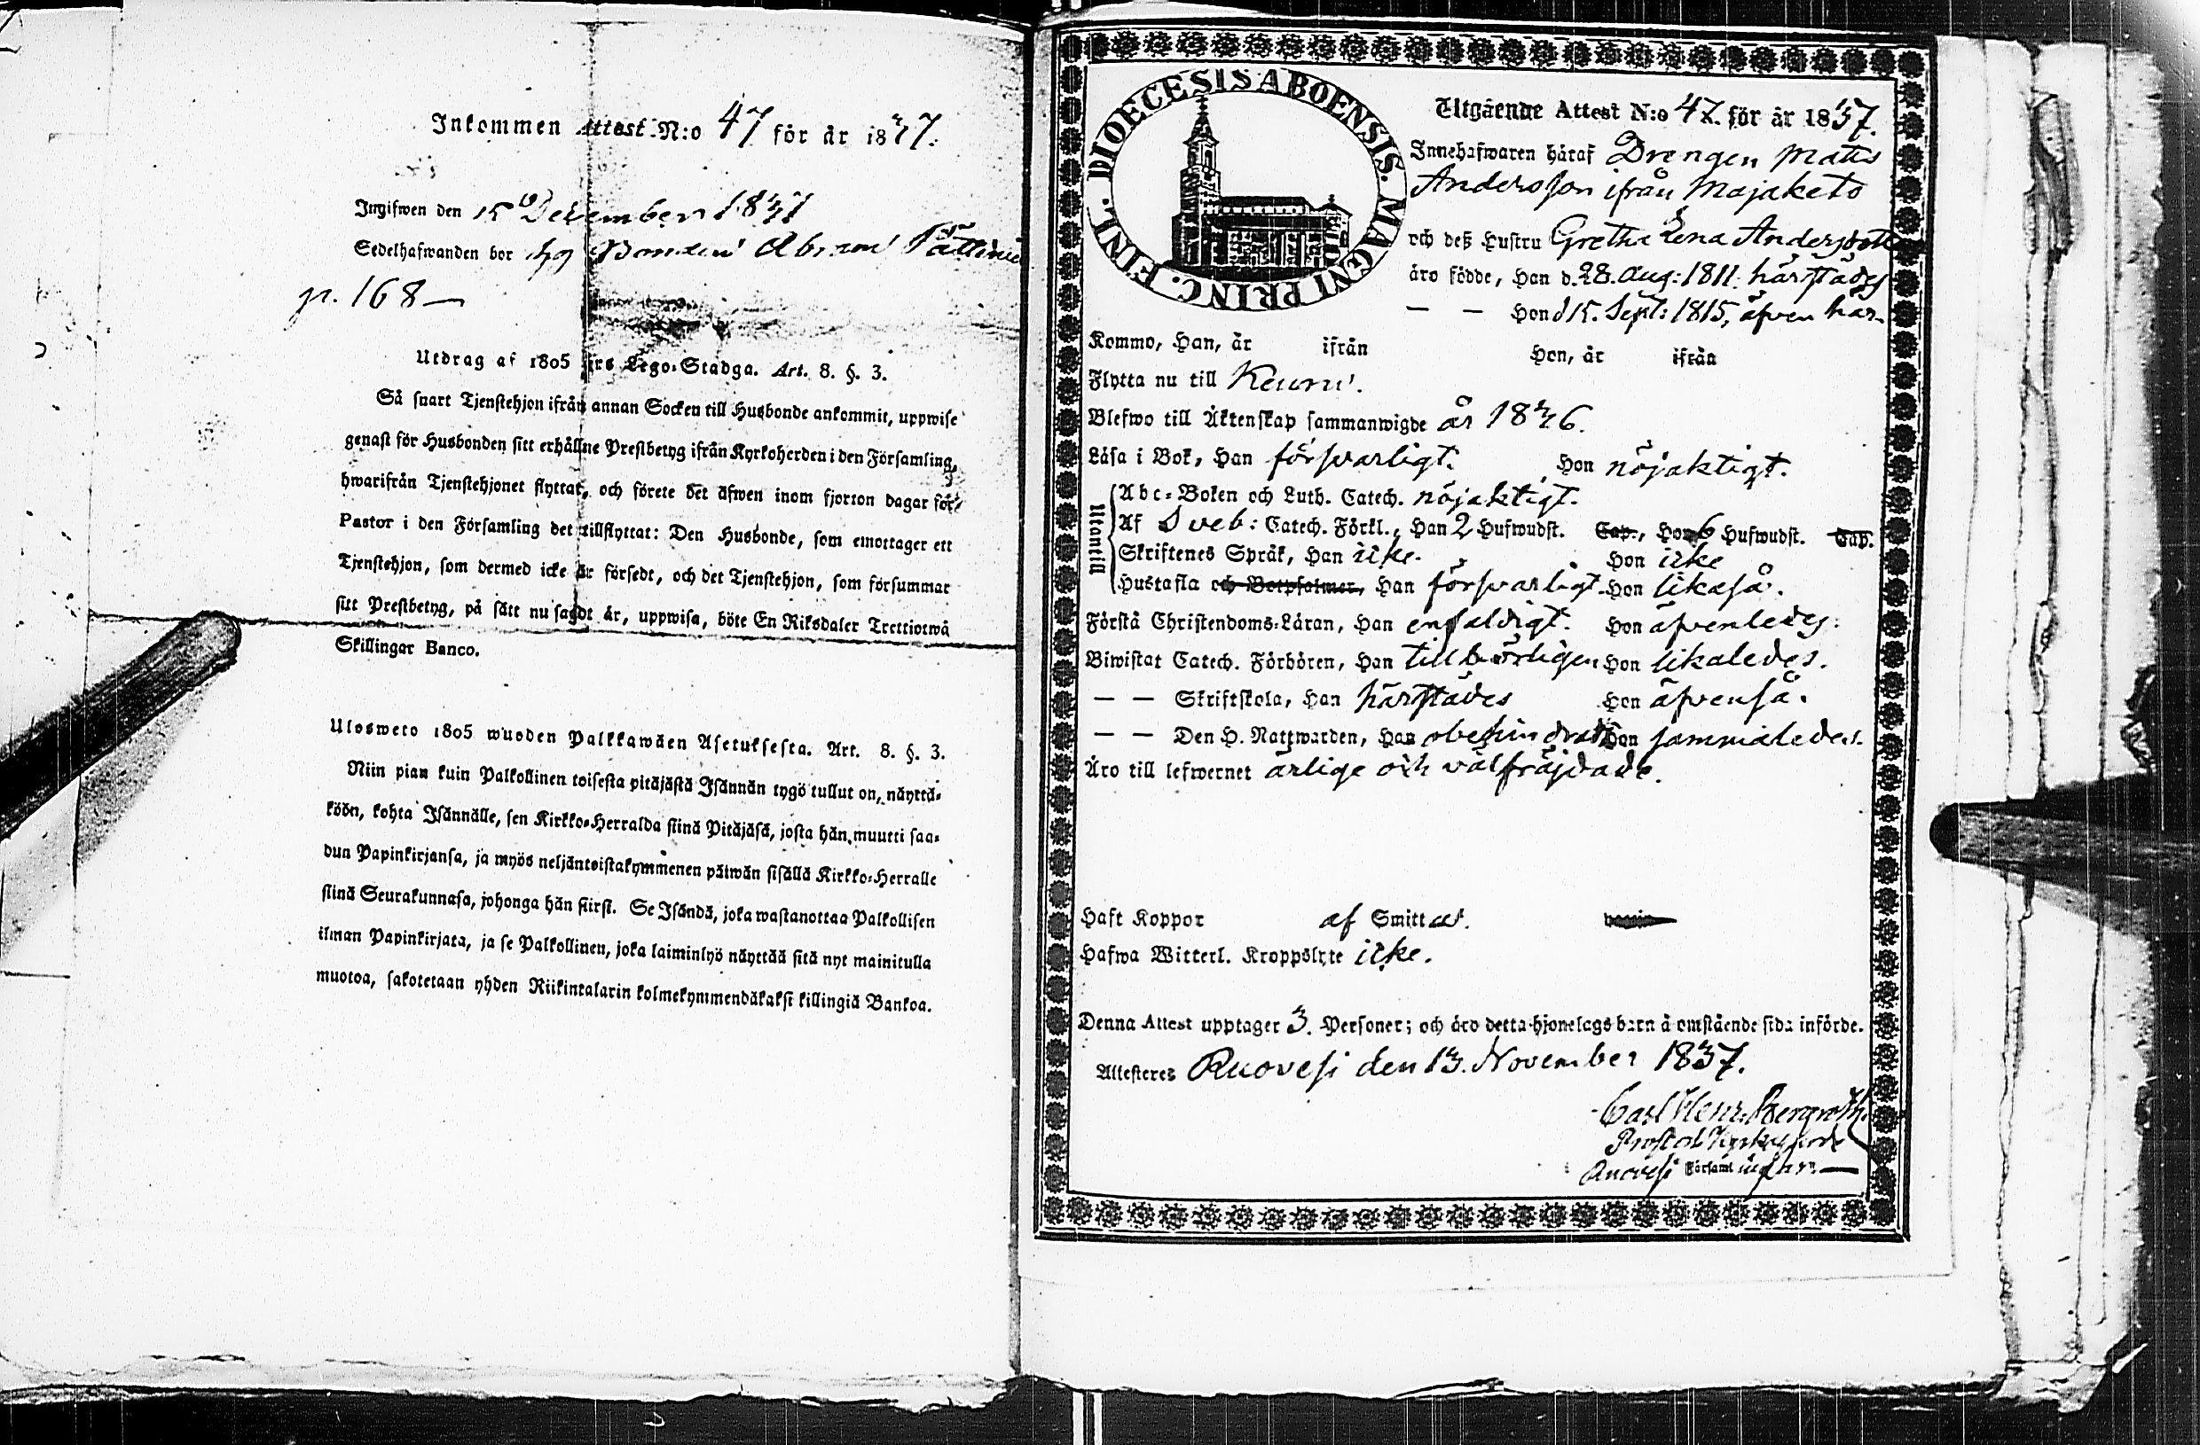 Inkommen Attest N:o 47 för år 1837.
Ingifwen den 15 December 1837
Sedelhafwanden bor hos Bonden Abram
p. 168 —
Utdrag af 1805 års Lego-Stadga. Art. 8. §. 3.
Så snart Tjenstehjon ifrån annan Socken till Husbonde ankommit, uppwise
genast för Husbonden sitt erhållne Prestbetyg ifrån Kyrkoherden i den Församling,
hwarifrån Tjenstehjonet flyttat, och förete det äfwen inom fjorton dagar för
Pastor i den Församling det tillflyttat: Den Husbonde, som emottager ett
Tjenstehjon, som dermed icke är försedt, och det Tjenstehjon, som försummar
sitt Prestbetyg, på sätt nu sagdt är, uppwisa, böte En Riksdaler Trettiotwå
Skillingar Banco.
Ulosweto 1805 wuoden Palkkawäen Asetuksesta. Art. 8. §. 3.
Niin pian kuin Palkollinen toisesta pitäjästä Isännän tygö tullut on, näyttä-
köön, kohta Isännälle, sen Kirkko-Herralda siinä Pitäjäsä, josta hän muutti saa-
dun Papinkirjansa, ja myös neljäntoistakymmenen päiwän sisällä Kirkko-Herralle
siinä Seurakunnasa, johonga hän siirsi. Se Isändä, joka wastanottaa Palkollisen
ilman Papinkirjata, ja se Palkollinen, joka laiminlyö näyttää sitä nyt mainitulla
muotoa, sakotetaan yhden Riikintalarin kolmekymmendäkaksi killingiä Bankoa.
DIOECESIS ABOENSIS. MAGNI PRINC. FINL.
Utgående Attest N:o 47. för år 1837.
Innehafwaren häraf Drengen Matts
Andersson ifrån Majaketo
och deß Hustru Gretha Lena Andersdott
äro födde, Han d. 28. Aug: 1811. härstädes
— — Hon d 15. Sept: 1815, äfven här.
Kommo, Han, år ifrån Hon, år ifrån
Flytta nu till Keuru.
Blefwo till Äktenskap sammanwigde år 1836.
Läsa i Bok, Han försvarligt. Hon nöjaktigt.
Utantill
Abc-Boken och Luth. Catech. nöjaktigt.
Af Sveb: Catech. Förkl., Han 2 Hufwudst. Cap., Hon 6 Hufwudst. Cap.
Skriftenes Språk, Han icke. Hon icke
Hustafla och Botpsalmer, Han försvarligt. Hon likaså.
Förstå Christendoms-Läran, Han enfaldigt. Hon äfvenledes.
Biwistat Catech. Förhören, Han tillbörligen Hon likaledes.
— — Skriftskola, Han härstädes Hon äfvenså.
— — Den H. Nattwarden, Han obehindrad Hon sammaledes.
Äro till lefwernet ärlige och välfräjdade.
Haft Koppor af Smitta.
Hafwa Witterl. Kroppslyte icke.
Denna Attest upptager 3. Personer; och äro detta hjonelags barn å omstående sida införde.
Attesteres Ruovesi den 13. November 1837.
Carl Henr. Bergroth.
Prost och Kyrkoherde
Ruovesi Församl